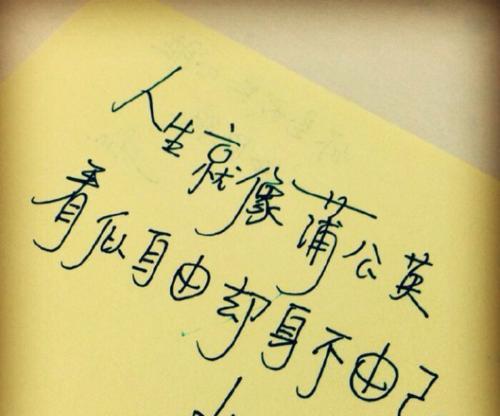 人生就像蒲公英
看似自由却身不由己